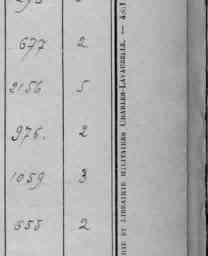 677 2
2156 5
976. 2
1059 3
555 2
RIE ET LIBRAIRIE MILITAIRES CHARLES-LAVAUZELLE. —